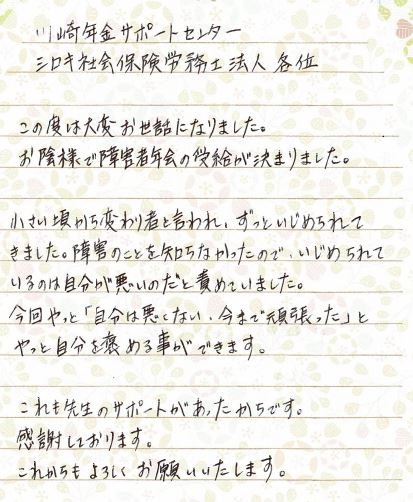 川崎年金サポートセンター
シロキ社会保険労務士法人 各位
この度は大変お世話になりました。
お陰様で障害者年金の受給が決まりました。
小さい頃から変わり者と言われ、ずっといじめられて
きました。障害のことを知らなかったので、いじめられて
いるのは自分が悪いのだと責めていました。
今回やっと「自分は悪くない、今まで頑張った」と
やっと自分を褒める事ができます。
これも先生のサポートがあったからです。
感謝しております。
これからもよろしくお願いいたします。